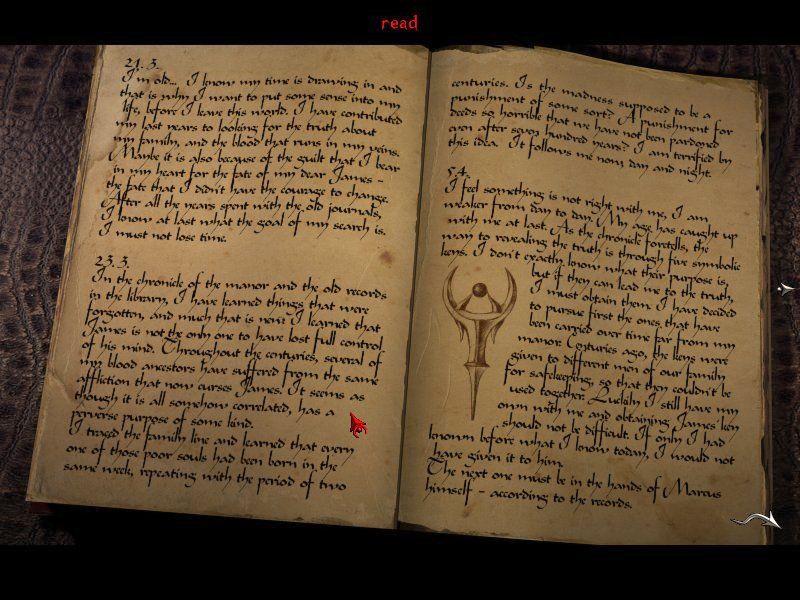 read
21. 3.
I'm old... I know my time is drawing in and
that is why I want to put some sense into my
life, before I leave this world. I have contributed
my last years to looking for the truth about
my family, and the blood that runs in my veins.
Maybe it is also because of the guilt that I bear
in my heart for the fate of my dear James -
the fate that I didn't have the courage to change.
After all the years spent with the old journals,
I know at last what the goal of my search is.
I must not lose time.
23.3.
In the chronicle of the manor and the old records
in the library, I have learned things that were
forgotten, and much that is new. I learned that
James is not the only one to have lost full control
of his mind. Throughout the centuries, several of
my blood ancestors have suffered from the same
affliction that now curses James. It seems as
though it is all somehow correlated, has a
perverse purpose of some kind.
I traced the family line and learned that every
one of those poor souls had been born in the
same week, repeating with the period of two
centuries. Is the madness supposed to be a
punishment of some sort? A punishment for
deeds so horrible that we have not been pardoned
even after seven hundred years? I am terrified by
this idea. It follows me now, day and night.
5.4.
I feel something is not right with me, I am
weaker from day to day. My age has caught up
with me at last. As the chronicle foretells, the
way to revealing the truth is through five symbolic
keys. I don't exactly know what their purpose is,
but if they can lead me to the truth,
I must obtain them. I have decided
to pursue first the ones that have
been carried over time far from my
manor. Centuries ago, the keys were
given to different men of our family
for safekeeping, so that they couldn't be
used together. Luckily I still have my
own with me and obtaining James' key
should not be difficult. If only I had
known before what I know today, I would not
have given it to him.
The next one must be in the hands of Marcus
himself - according to the records.